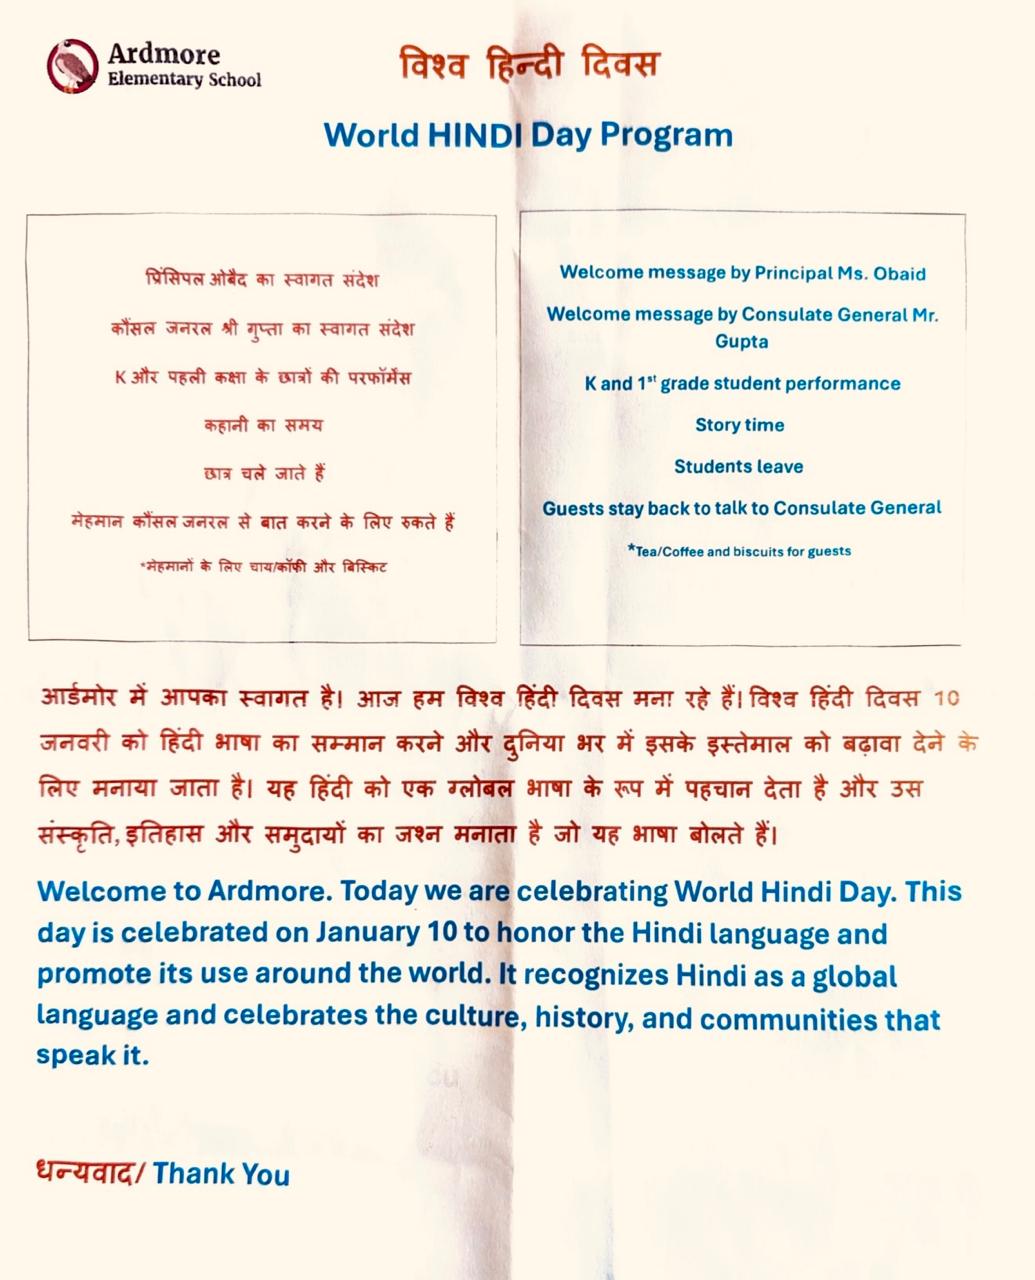 Ardmore
Elementary School
विश्व हिन्दी दिवस
World HINDI Day Program
प्रिंसिपल ओबैद का स्वागत संदेश
कौंसल जनरल श्री गुप्ता का स्वागत संदेश
K और पहली कक्षा के छात्रों की परफॉर्मेंस
कहानी का समय
छात्र चले जाते हैं
मेहमान कौंसल जनरल से बात करने के लिए रुकते हैं
*मेहमानों के लिए चाय/कॉफी और बिस्किट
Welcome message by Principal Ms. Obaid
Welcome message by Consulate General Mr.
Gupta
K and 1st grade student performance
Story time
Students leave
Guests stay back to talk to Consulate General
*Tea/Coffee and biscuits for guests
आर्डमोर में आपका स्वागत है। आज हम विश्व हिंदी दिवस मना रहे हैं। विश्व हिंदी दिवस 10
जनवरी को हिंदी भाषा का सम्मान करने और दुनिया भर में इसके इस्तेमाल को बढ़ावा देने के
लिए मनाया जाता है। यह हिंदी को एक ग्लोबल भाषा के रूप में पहचान देता है और उस
संस्कृति, इतिहास और समुदायों का जश्न मनाता है जो यह भाषा बोलते हैं।
Welcome to Ardmore. Today we are celebrating World Hindi Day. This
day is celebrated on January 10 to honor the Hindi language and
promote its use around the world. It recognizes Hindi as a global
language and celebrates the culture, history, and communities that
speak it.
धन्यवाद/ Thank You